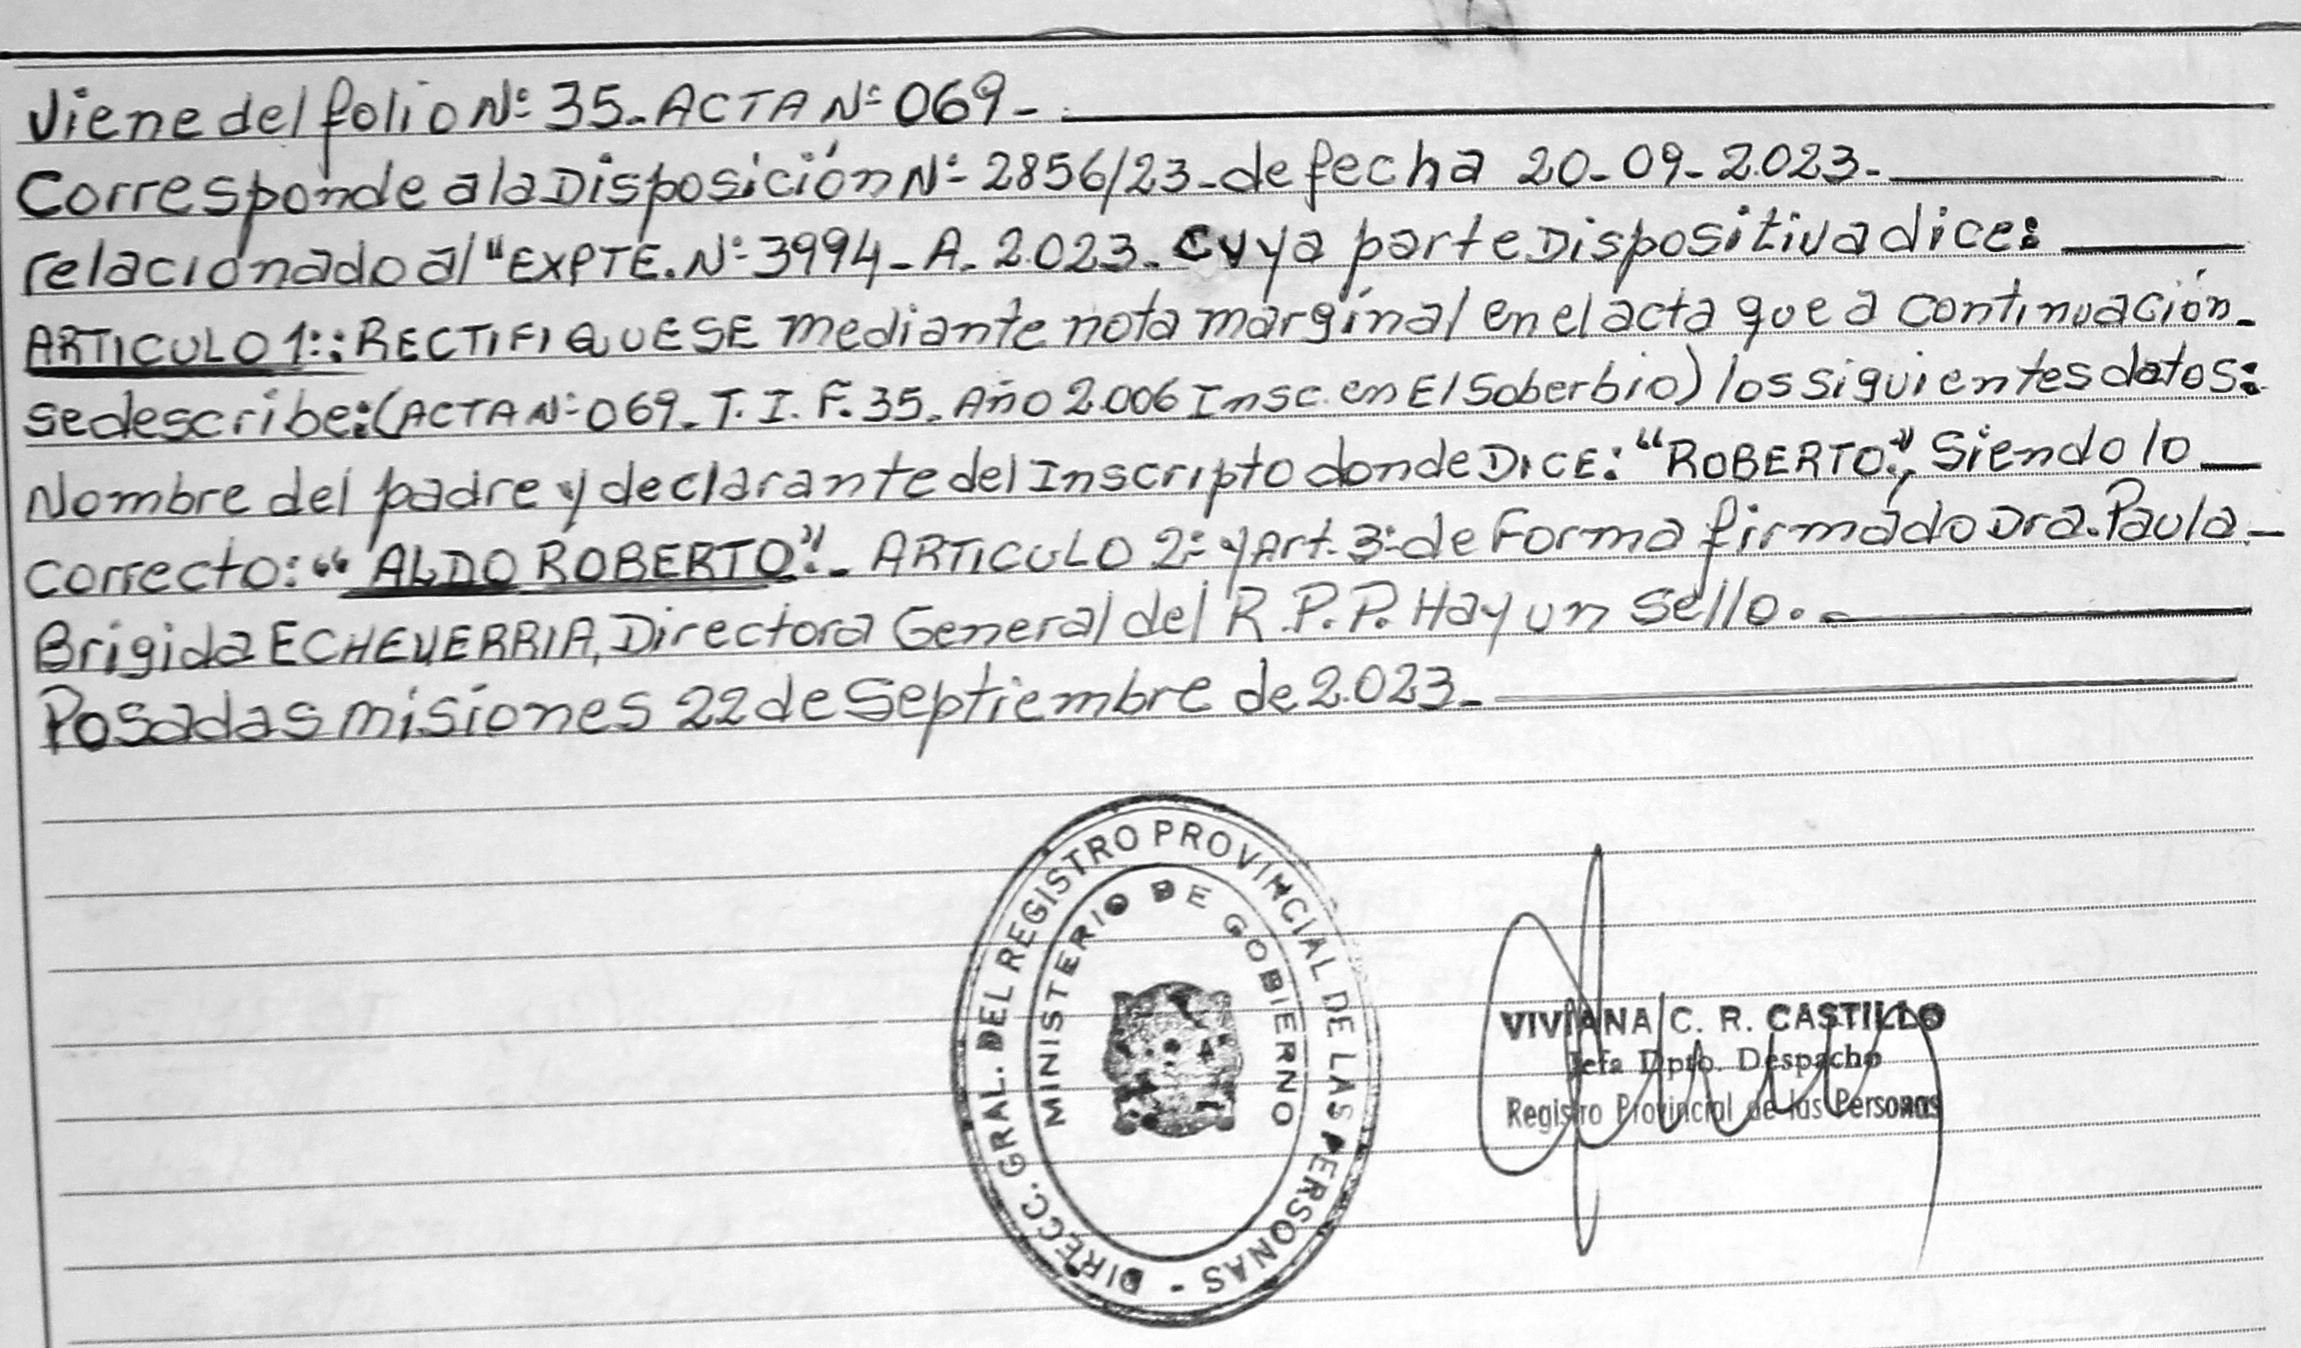 Viene del folio Nº 35. ACTA Nº 069-.
Corresponde a la Disposición Nº 2856/23-de fecha 20-09-2.023-.
relacionado al "EXPTE. Nº 3994-A-2.023-cuya parte Dispositiva dice:
ARTICULO 1º: RECTIFIQUESE mediante nota marginal en el acta que a continuación-
se describe: (ACTA Nº 069-T. I. F. 35. Año 2.006 Insc. en El Soberbio) los siguientes datos:
Nombre del padre y declarante del Inscripto donde DICE: "ROBERTO", Siendo lo
Correcto: "ALDO ROBERTO".- ARTICULO 2º y Art. 3º de Forma firmado Dra. Paula-
Brigida ECHEVERRIA, Directora General del R.P.P. Hay un sello.-
Posadas misiones 22 de Septiembre de 2.023-
DIRECC. GRAL. DEL REGISTRO PROVINCIAL DE LAS PERSONAS -
MINISTERIO DE GOBIERNO
VIVIANA C. R. CASTILLO
Jefa Dpto. Despacho
Registro Provincial de las Personas